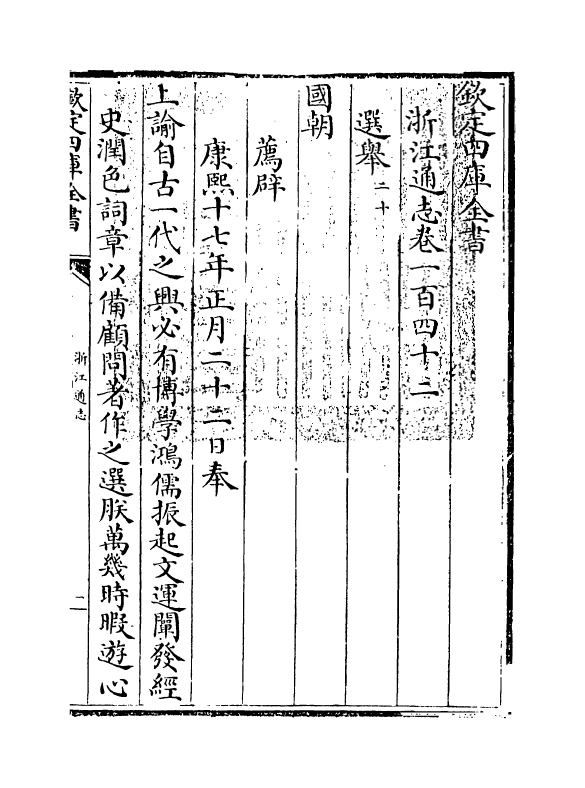 欽定四庫全書
浙江通志卷一百四十二
選舉二十
國朝
薦辟
康熙十七年正月二十二日奉
上諭自古一代之興必有博學鴻儒振起文運闡發經
史潤色詞章以備顧問著作之選朕萬幾時暇遊心
欽定四庫全書
浙江通志